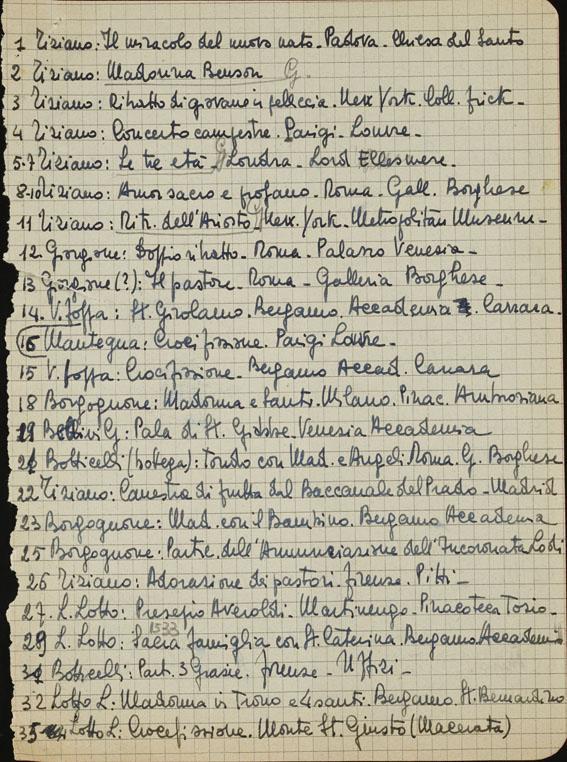 1 Tiziano: Il miracolo del nuovo nato. Padova. Chiesa del Santo
2 Tiziano: Madonna Benson G.
3 Tiziano: Ritratto di giovane in pelliccia. New York. Coll. Frick.
4 Tiziano: Concerto campestre. Parigi. Louvre.
5-7 Tiziano: Le tre età. G Londra. Lord Ellesmere.
8-10 Tiziano: Amor sacro e profano. Roma. Gall. Borghese
11 Tiziano: Ritr. dell'Ariosto. New York. Metropolitan Museum.
12 Giorgione: Doppio ritratto. Roma. Palazzo Venezia.
13 Giorgione (?): Il pastore. Roma. Galleria Borghese.
14. V. Foppa: St. Girolamo. Bergamo. Accademia Carrara.
16 Mantegna: Crocifissione. Parigi Louvre.
15 V. Foppa: Crocifissione. Bergamo Accad. Carrara
18 Borgognone: Madonna e santi. Milano. Pinac. Ambrosiana
19 Bellini G: Pala di St. Giobbe. Venezia Accademia
21 Botticelli (bottega): Tondo con Mad. e Angeli. Roma. G. Borghese
22 Tiziano: Canestro di frutta dal Baccanale del Prado. Madrid
23 Borgognone: Mad. con il Bambino. Bergamo Accademia
25 Borgognone: Partic. dell'Annunciazione dell'Incoronata Lodi
26 Tiziano: Adorazione dei pastori. Firenze. Pitti.
27. L. Lotto: Presepio Averoldi. Martinengo. Pinacoteca Tosio.
1533
29 L. Lotto: Sacra famiglia con St. Caterina. Bergamo. Accademia
31 Botticelli: Part. 3 Grazie. Firenze. Uffizi.
32 Lotto L. Madonna in Trono e 4 santi. Bergamo. St. Bernardino
35 Lotto L: Crocefissione. Monte St. Giusto (Macerata)